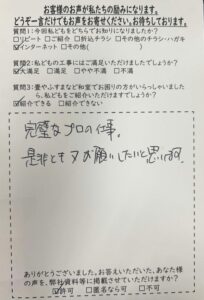 お客様のお声が私たちの励みになります。
どうぞ一言だけでもお声をお寄せください。お待ちしております。
質問1:今回私どもをどちらでお知りになりましたか?
□リピート □ご紹介 □折込チラシ □その他のチラシ・ハガキ
☑インターネット □その他( )
質問2:私どもの工事にはご満足いただけましたでしょうか?
☑大満足 □満足 □やや不満 □不満
質問3:畳やふすまなど和室でお困りの方がいらっしゃいましたら、私どもをご紹介いただけますでしょうか?
☑紹介できる □紹介できない
完璧なプロの仕事。
是非ともまたお願いしたいと思います。
ありがとうございました。お答えいただいた、あなた様
の声を、弊社資料等に掲載させていただけますか?
☑許可 □匿名なら可 □不可